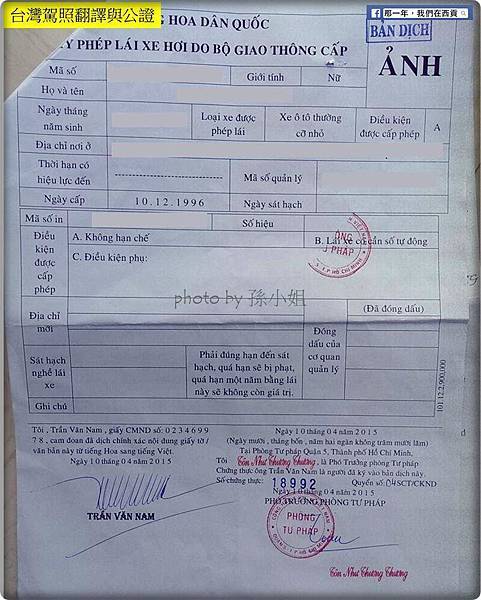 台灣駕照翻譯與公證
那一年，我們在西貢
G HOA DÂN QUỐC
BẢN DỊCH
Y PHÉP LÁI XE HƠI DO BỘ GIAO THÔNG CẤP
ẢNH
Mã số
Giới tính
Nữ
Họ và tên
Ngày tháng năm sinh
Loại xe được phép lái
Xe ô tô thường cỡ nhỏ
Điều kiện được cấp phép
A
Địa chỉ nơi ở
Thời hạn có hiệu lực đến
Mã số quản lý
Ngày cấp
10.12.1996
Ngày sát hạch
Mã số in
Số hiệu
Điều kiện được cấp phép
A. Không hạn chế
B. Lái xe có cần số tự động
C. Điều kiện phụ:
photo by 孫小姐
Địa chỉ mới
(Đã đóng dấu)
Sát hạch nghề lái xe
Phải đúng hạn đến sát hạch, quá hạn sẽ bị phạt, quá hạn một năm bằng lái này sẽ không còn giá trị.
Đóng dấu của cơ quan quản lý
Ghi chú
101.12.2,900,000
Tôi, Trần Văn Nam, giấy CMND số: 0 2 3 4 6 9 9
7 8, cam đoan đã dịch chính xác nội dung giấy tờ/
văn bản này từ tiếng Hoa sang tiếng Việt.
Ngày 10 tháng 04 năm 2015
TRẦN VĂN NAM
Ngày 10 tháng 04 năm 2015
(Ngày mười, tháng bốn, năm hai ngàn không trăm mười lăm)
Tại Phòng Tư pháp Quận 5, Thành phố Hồ Chí Minh.
Tôi Tôn Như Thương Thương, là Phó Trưởng phòng Tư pháp
Chứng thực ông Trần Văn Nam là người đã ký vào bản dịch này.
Số chứng thực: 18992 Quyển số: 04 SCT/CKND
Ngày 10 tháng 04 năm 2015
PHÓ TRƯỞNG PHÒNG TƯ PHÁP
PHÒNG
TƯ PHÁP
Tôn Như Thương Thương